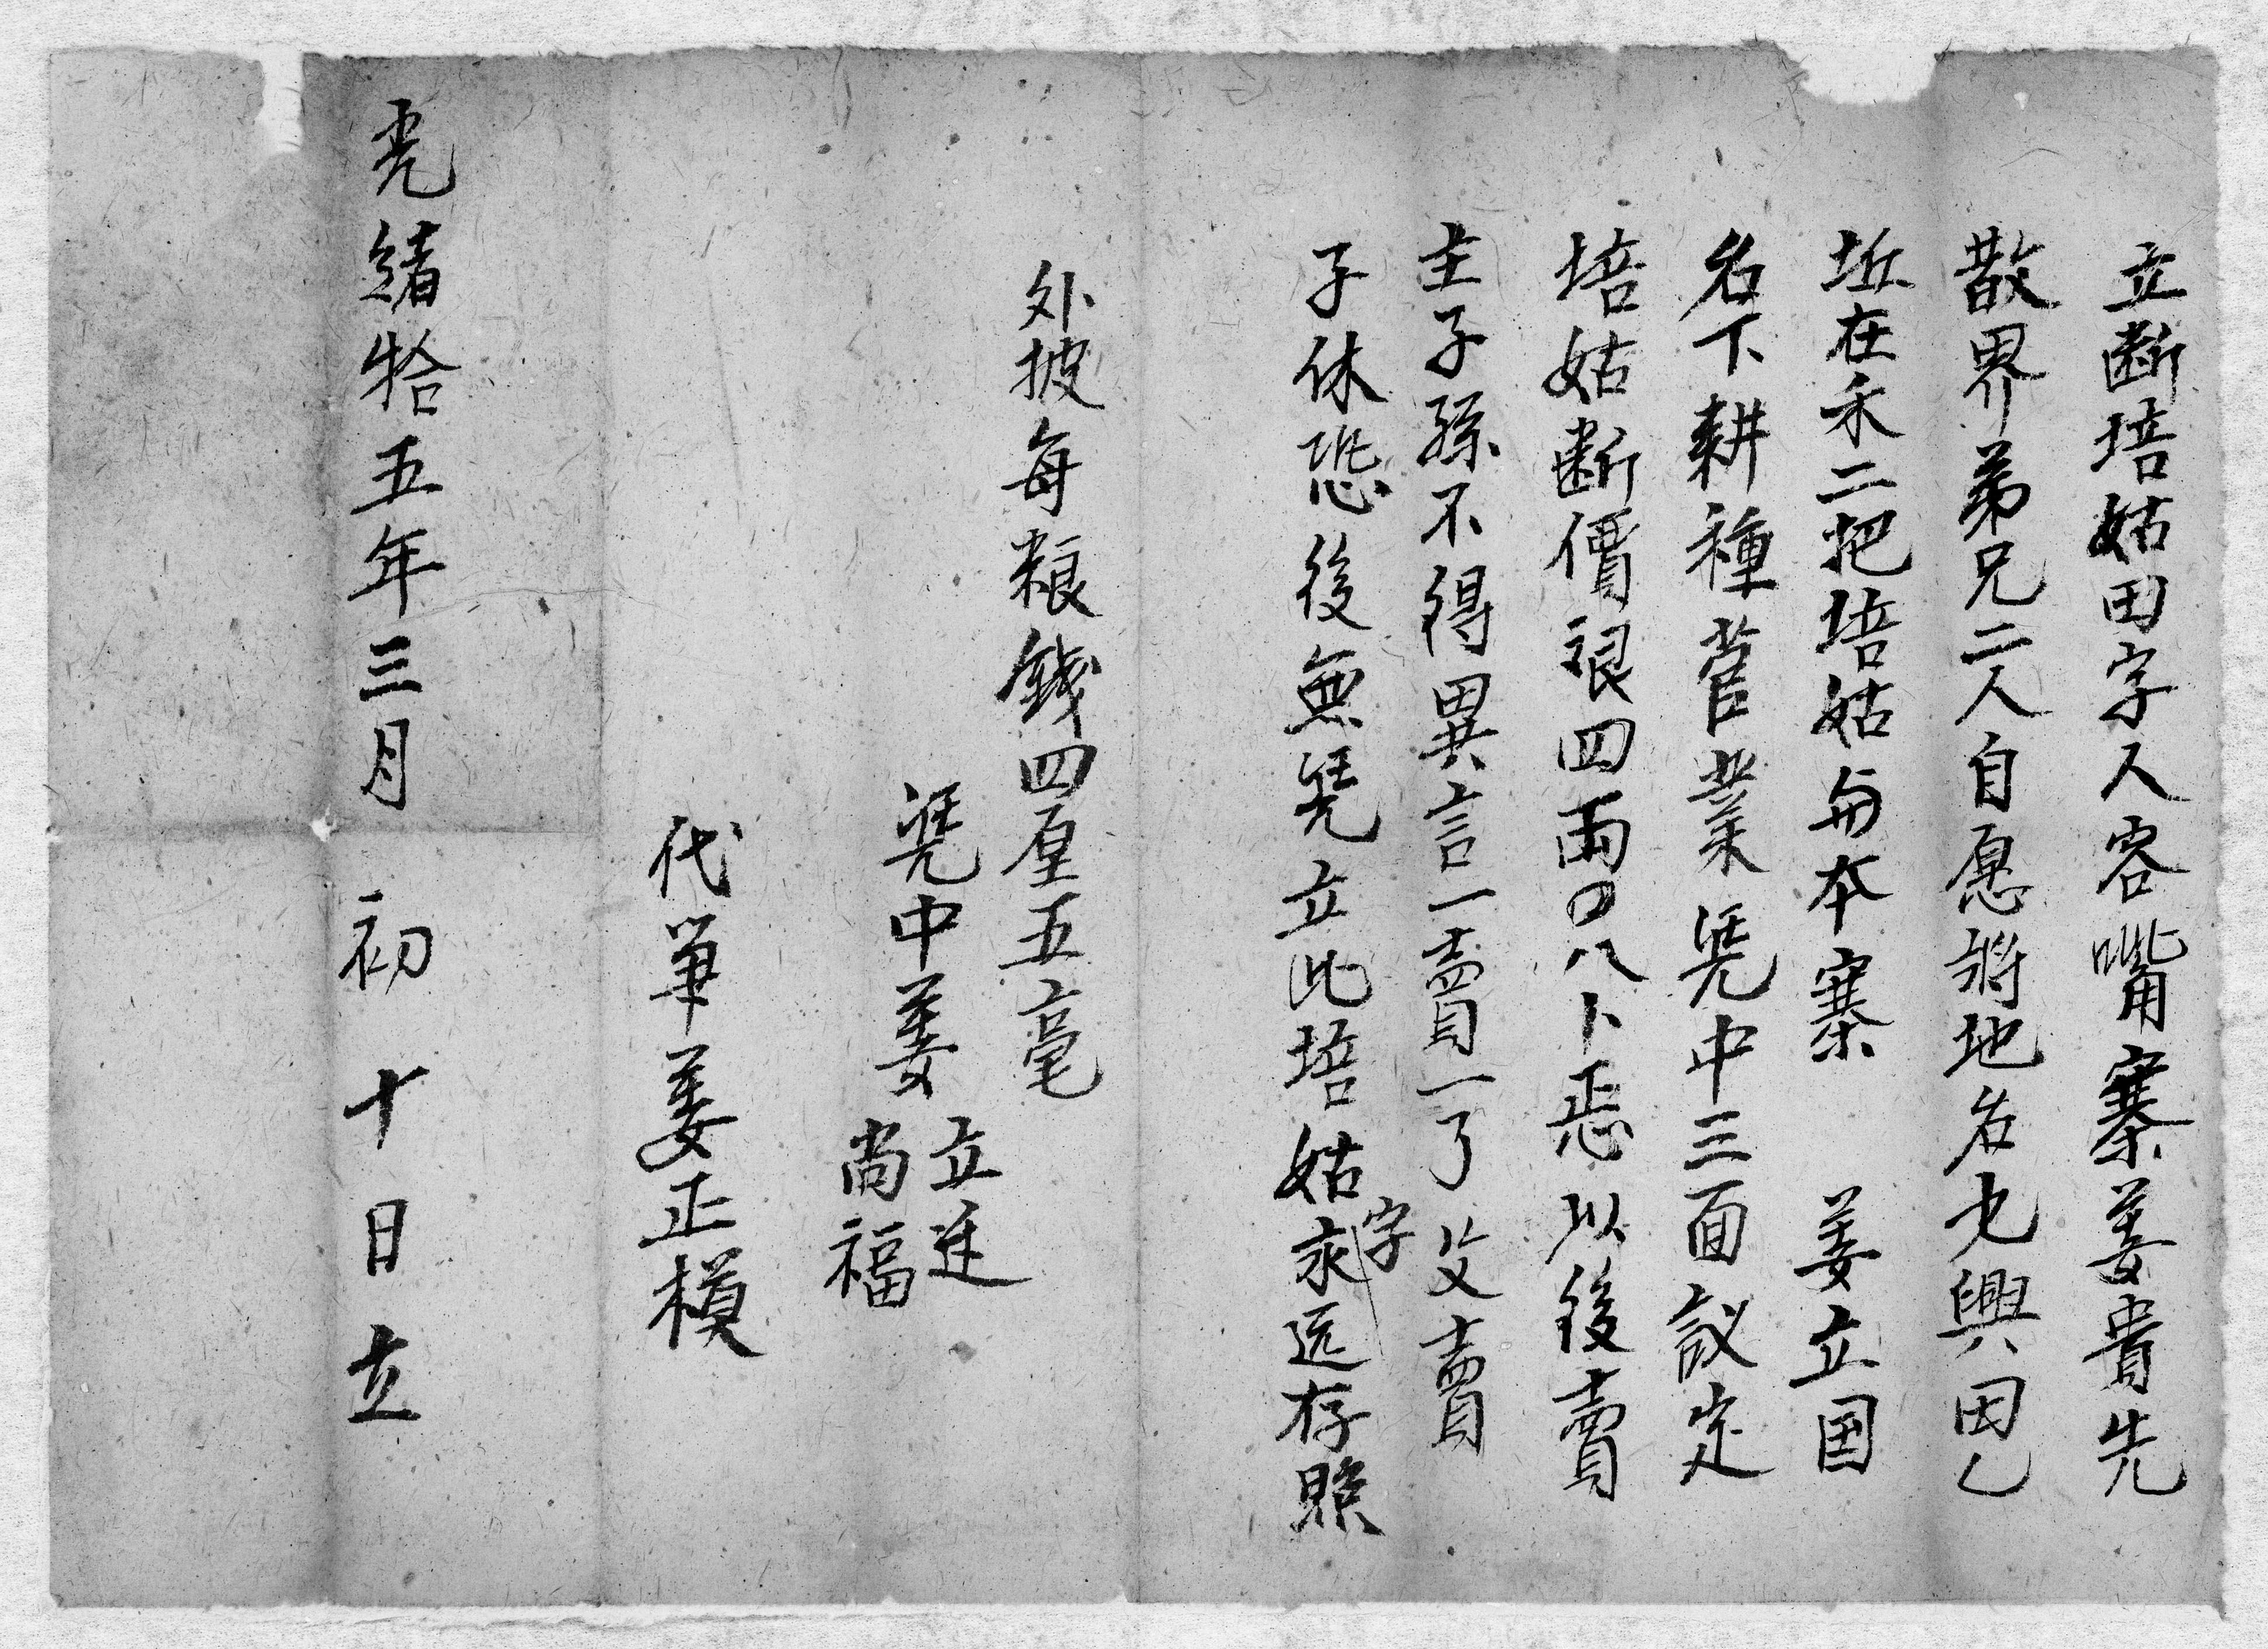 立断培姑田字人容嘴寨姜貴先
散界弟兄二人自愿将地名九興田乙
坵在禾二把培姑与本寨 姜立国
名下耕種菅業凴中三面議定
培姑断價艮四両〇八卜悪以後賣
主子孫不得異言一賣一了父賣
子休恐後無凴立此培姑字永远存照
外披每粮錢四厘五毫
凴中姜立廷
尚福
代筆姜正模
光緒拾五年三月初十日立